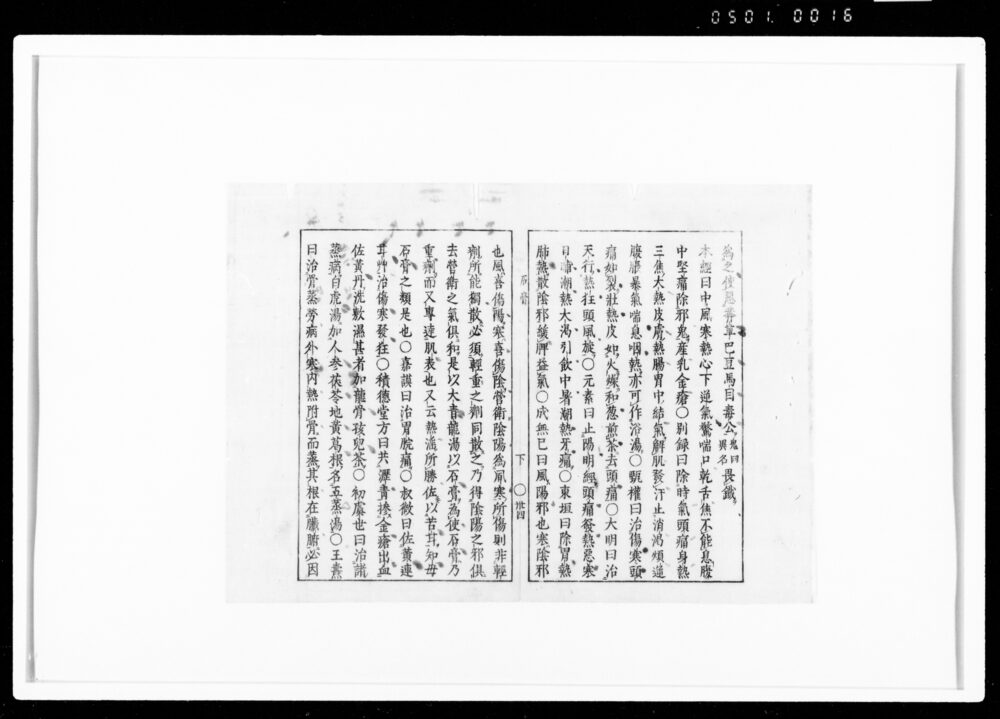 0501.0016
為之使惡莽草巴豆馬目毒公鬼臼異名畏鐵
本經曰中風寒熱心下逆氣驚喘口乾舌焦不能息腹
中堅痛除邪鬼産乳金瘡○別録曰除時氣頭痛身熱
三焦大熱皮膚熱腸胃中結氣解肌發汗止消渴煩逆
腹脹暴氣喘息咽熱亦可作浴湯○甄權曰治傷寒頭
痛如裂壯熱皮如火燥和葱煎茶去頭痛○大明曰治
天行熱狂頭風旋○元素曰止陽明經頭痛發熱惡寒
日晡潮熱大渴引飲中暑潮熱牙痛○東垣曰除胃熱
肺熱散陰邪緩脾益氣○成無已曰風陽邪也寒陰邪
石膏
下 ○卅四
也風喜傷陽寒喜傷陰營衛陰陽為風寒所傷則非輕
劑所能獨散必須輕重之劑同散之乃得陰陽之邪俱
去營衛之氣俱和是以大青龍湯以石膏為使石膏乃
重劑而又專達肌表也又云熱淫所勝佐以苦甘知母
石膏之類是也○嘉謨曰治胃脘痛○叔微曰佐黄連
甘艸治傷寒發狂○積德堂方曰共瀝青摻金瘡出血
佐黄丹洗敷濕甚者加龍骨孩兒茶○初虞世曰治諸
蒸病白虎湯加人參茯苓地黄葛根名五蒸湯○王燾
曰治骨蒸勞病外寒内熱附骨而蒸其根在臟腑必因